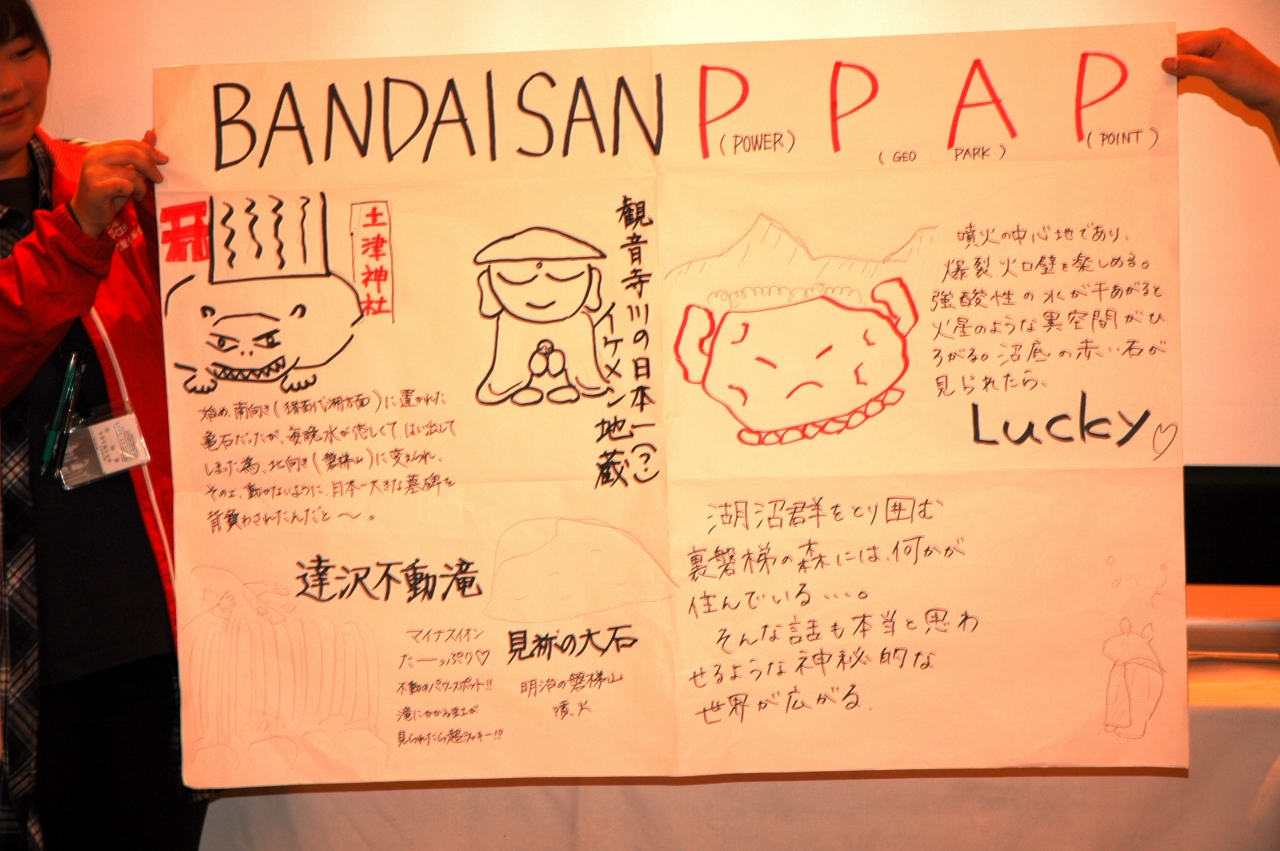 BANDAISAN P P A P
(POWER) (GEO PARK) (POINT)
土津神社
始め、南向き(猪苗代湖方面)に置かれた
亀石だったが、毎晩水が恋しくて、はい出して
しまった為、北向き(磐梯山)に変えられ、
その上、動かないように、日本一大きな墓碑を
背負わされたんだと〜。
観音寺川の日本一(?)
イケメン地蔵
噴火の中心地であり、
爆裂火口壁を楽しめる。
強酸性の水が干あがると
火星のような異空間がひ
ろがる。沼底の赤い石が
見られたら、
Lucky♡
達沢不動滝
マイナスイオン
たーっぷり♡
不動のパワースポット!!
滝にかかる虹が
見られたら超ラッキー!!!
見祢の大石
明治の磐梯山
噴火
湖沼群をとり囲む
裏磐梯の森には、何かが
住んでいる・・・。
そんな話も本当と思わ
せるような神秘的な
世界が広がる。